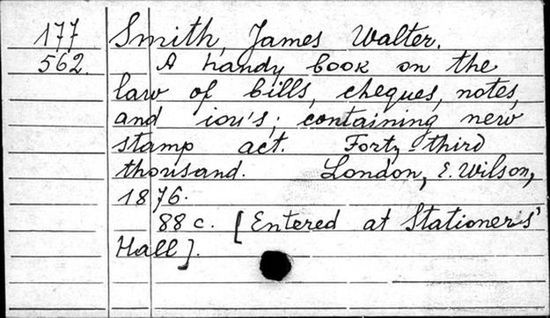 177 Smith, James Walter.
562. A handy book on the
law of bills, cheques, notes,
and iou's; containing new
stamp act. Forty-third
thousand. London, E. Wilson,
1876.
88 c. [Entered at Stationers'
Hall].